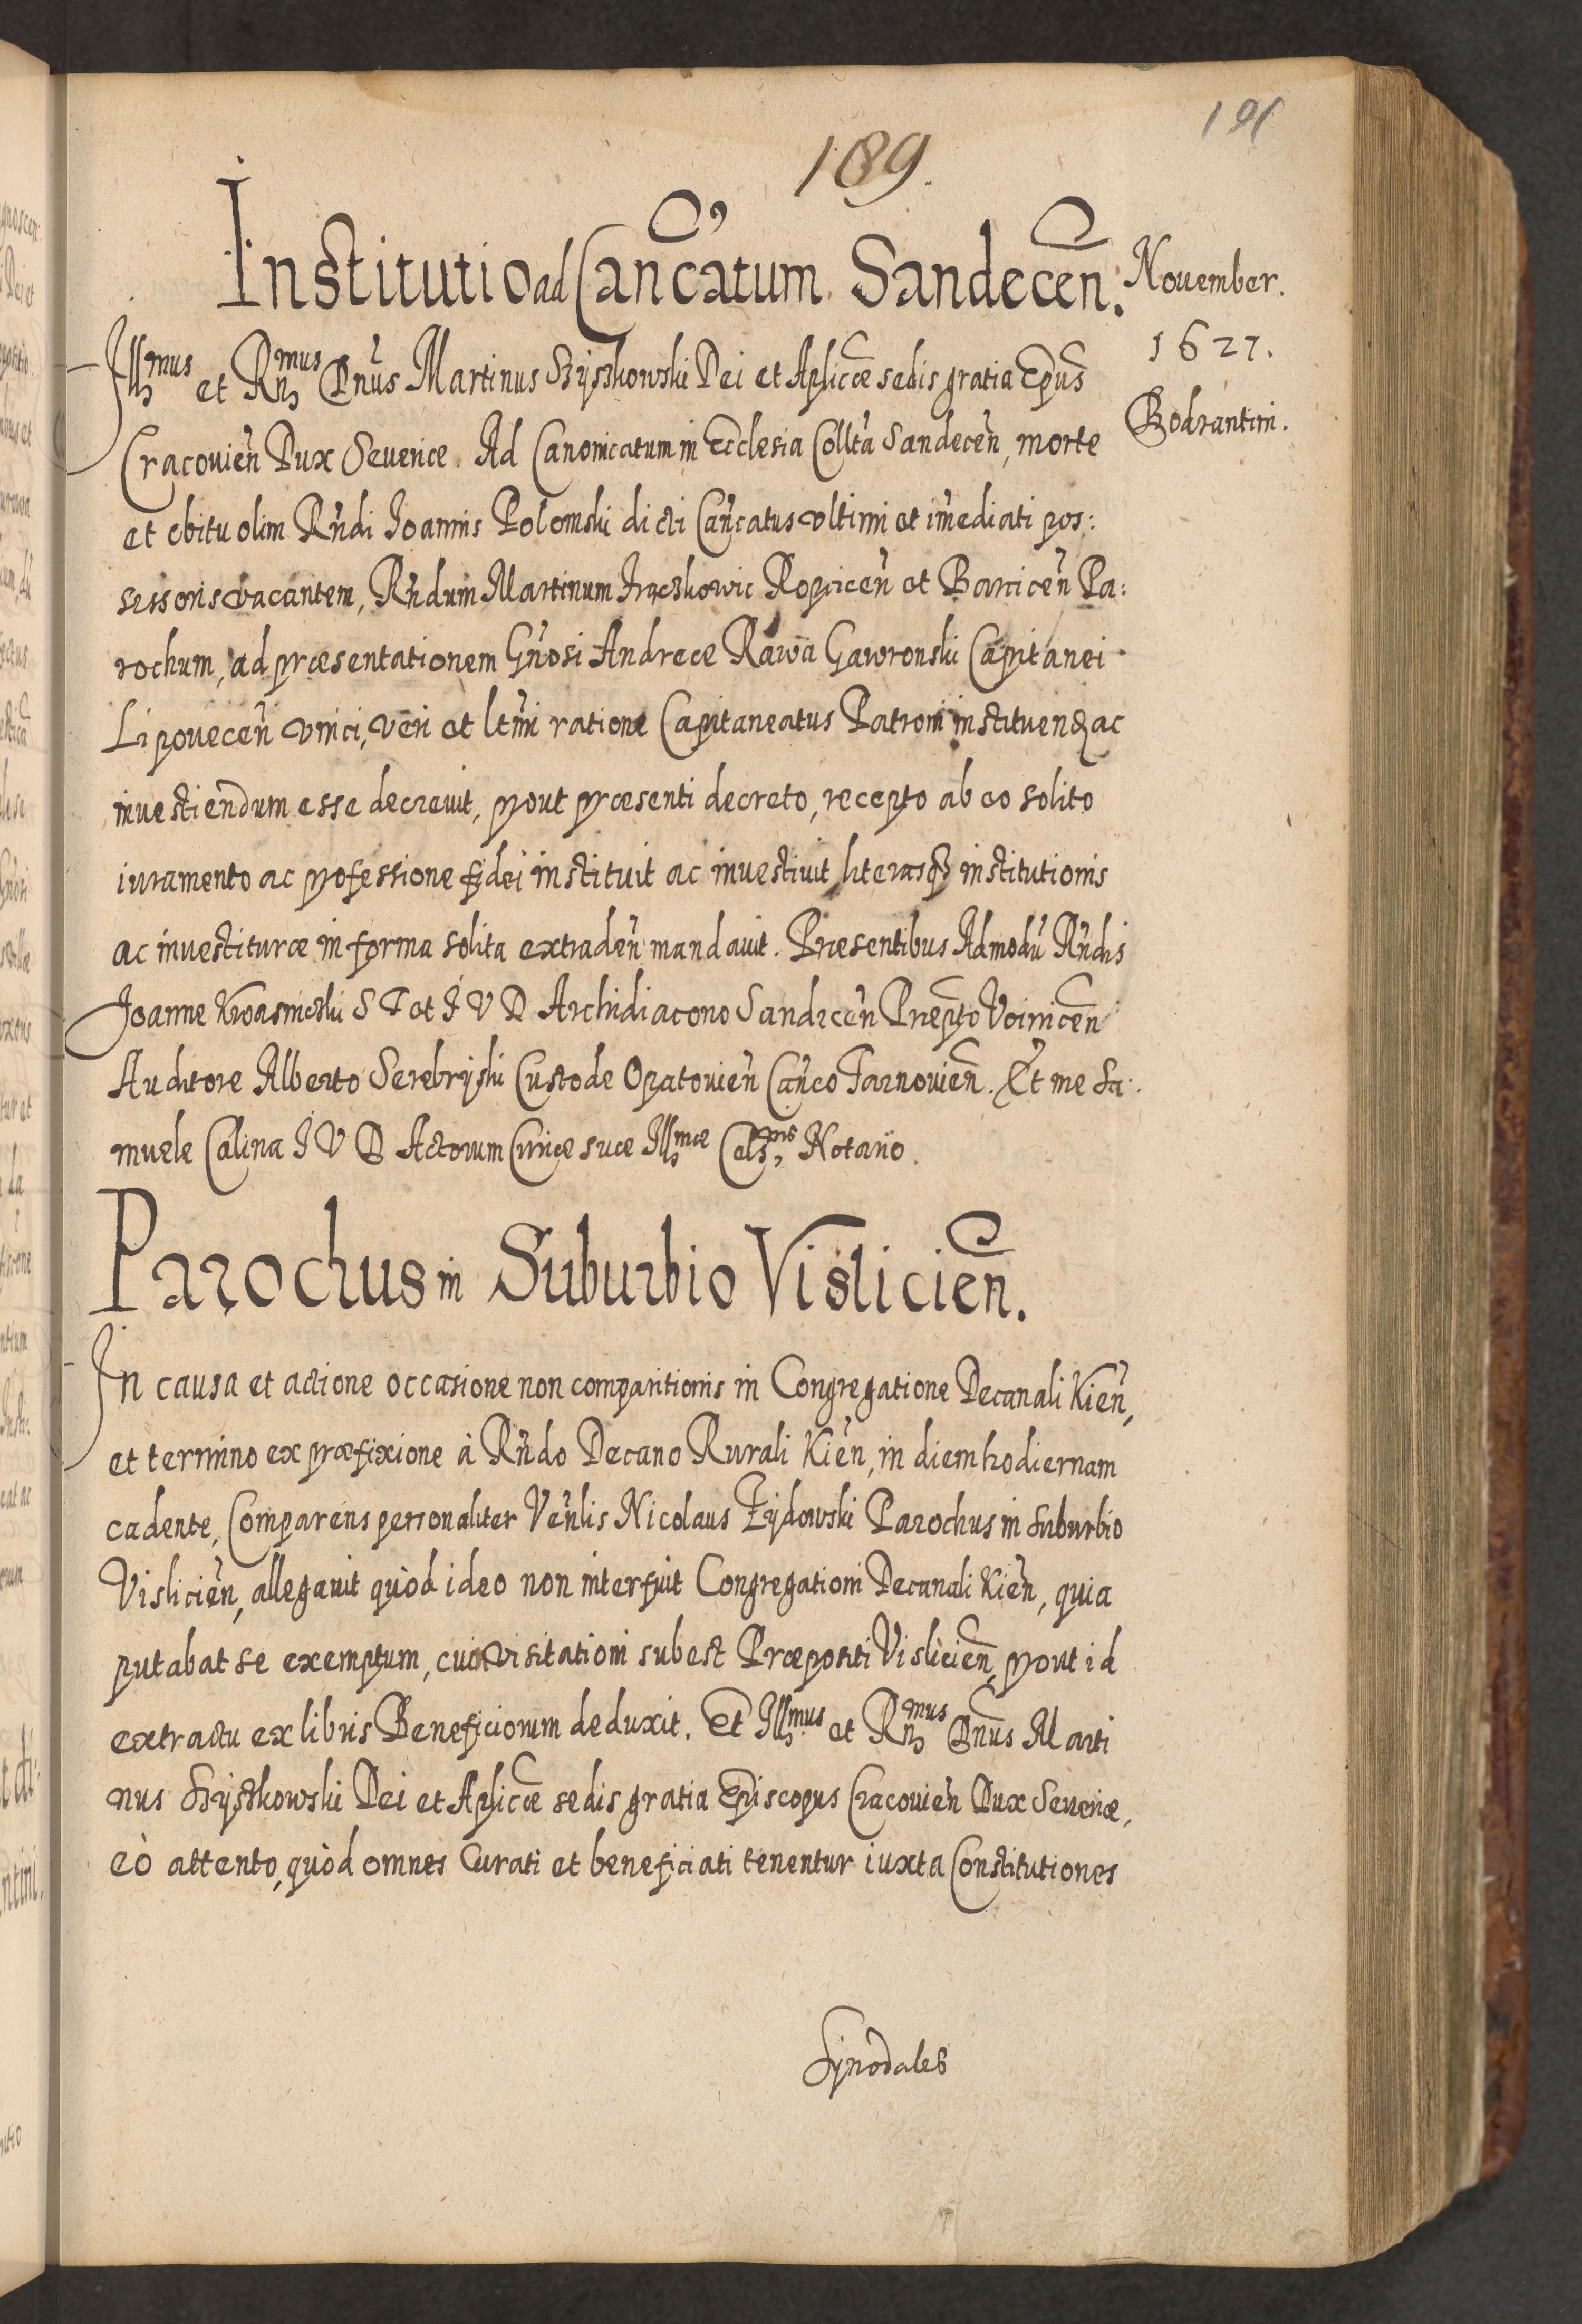 191
189.
Institutio ad Cancatum Sandecen.
November.
1627.
Bodzantini.
Illmus et Rnmus Dnus Martinus Szyszkowski Dei et Aplicæ sedis gratia Epus
Cracovien Dux Severiæ. Ad Canonicatum in Ecclesia Collta Sandecen, morte
et obitu olim Rndi Joannis Polomski dicti Cancatus vltimi et imediati pos:
sessoris vacantem, Rndum Martinum Ropicen et Barcicen Pa:
rochum, ad præsentationem Gnosi Andreæ Rawa Gawronski Capitanei
Lipovecen vnici, veri et ltimi ratione Capitaneatus Patroni instituend ac
investiendum esse decrevit, prout præsenti decreto, recepto ab eo solito
iuramento ac professione fidei instituit ac investivit literasq institutionis
ac investituræ in forma solita extraden mandauit. Præsentibus Admodu Rndis
Joanne Kwasnicki S T et J V D Archidiacono Sandecen Præpto Voinicen
Auditore Alberto Serebryski Custode Opatovien Canco Tarnovien. Et me Sa:
muele Calina J V D Actorum Curiæ suæ Illmæ Celsnis Notario.
Parochus in Suburbio Vislicien.
In causa et actione occasione non comparitionis in Congregatione Decanali Kien,
et termino ex præfixione à Rndo Decano Rurali Kien, in diem hodiernam
cadente, Comparens personaliter Venlis Nicolaus Zydowski Parochus in suburbio
Vislicien, allegauit quòd ideo non interfuit Congregationi Decanali Kien, quia
putabat se exemptum, cum visitationi subest Præpositi Vislicien, prout id
extractu ex libris Beneficiorum deduxit. Et Illmus et Rnmus Dnus Marti
nus Szyszkowski Dei et Aplicæ sedis gratia Episcopus Cracovien Dux Severiæ,
eò attento, quòd omnes Curati et beneficiati tenentur iuxta Constitutiones
Synodales